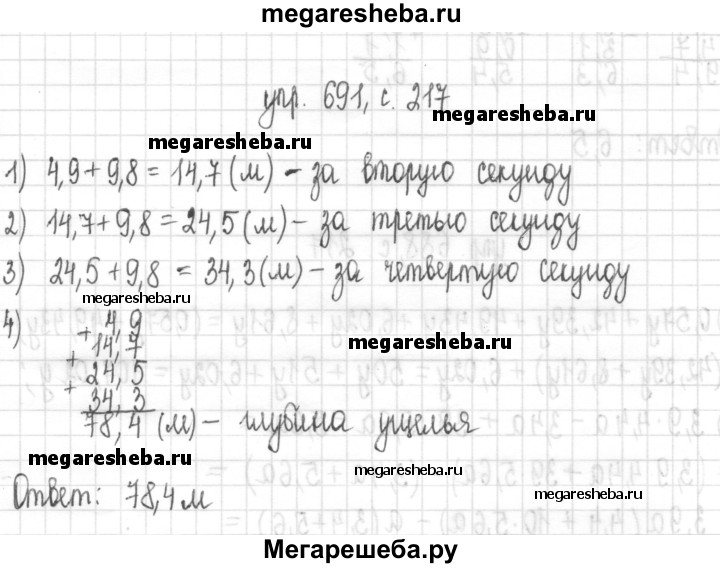 megaresheba.ru
упр. 691, с. 217
megaresheba.ru
megaresheba.ru
1) 4,9 + 9,8 = 14,7 (м) – за вторую секунду
2) 14,7 + 9,8 = 24,5 (м) – за третью секунду
3) 24,5 + 9,8 = 34,3 (м) – за четвертую секунду
megaresheba.ru
4) + 4,9
+ 14,7
megaresheba.ru
+ 24,5
34,3
78,4 (м) – глубина ущелья
megaresheba.ru
megaresheba.ru
Ответ: 78,4 м
megaresheba.ru
Мегарешеба.ру